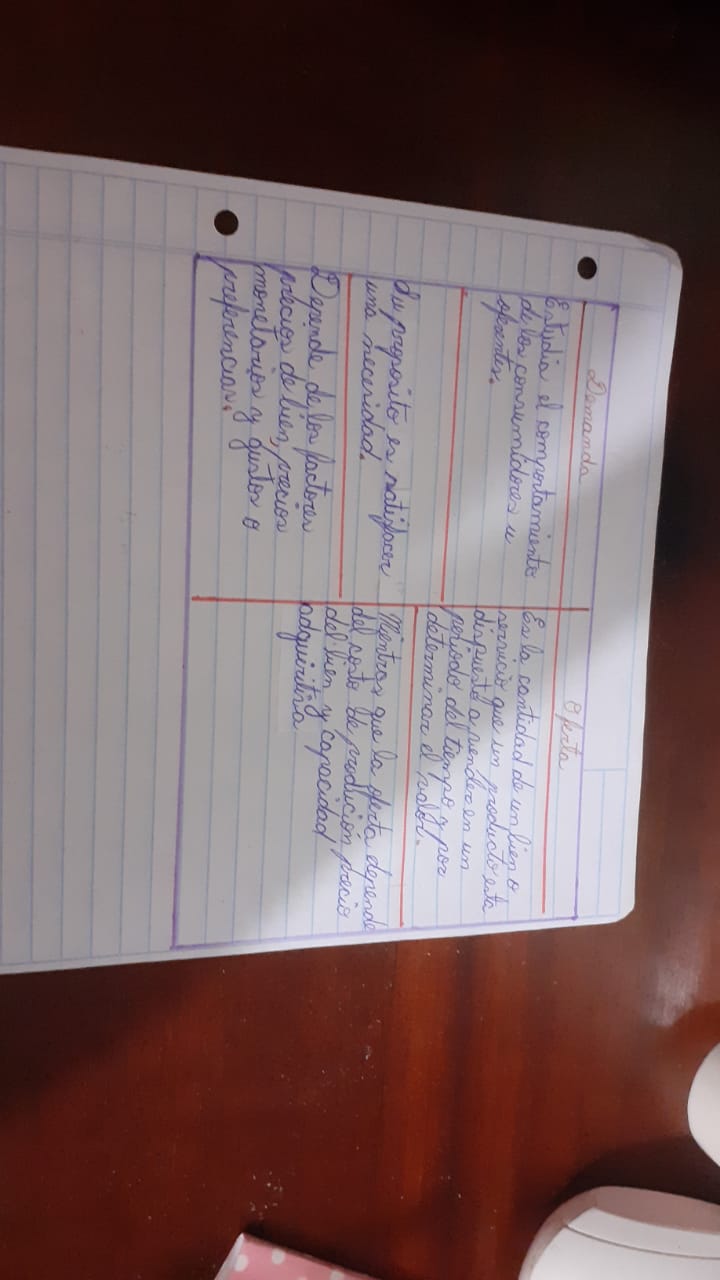 Demanda
Estudia el comportamiento
de los consumidores u
ofrantes.
Su proposito es satisfacer
una necesidad.
Depende de los factores
precios de bien, precios
monetarios y gustos o
preferencias.
Oferta
Es la cantidad de un bien o
servicio que un producto esta
dispuesto a vender en un
periodo del tiempo y por
determinar el valor.
Mientras que la oferta depende
del costo de produción, precio
del bien y capacidad